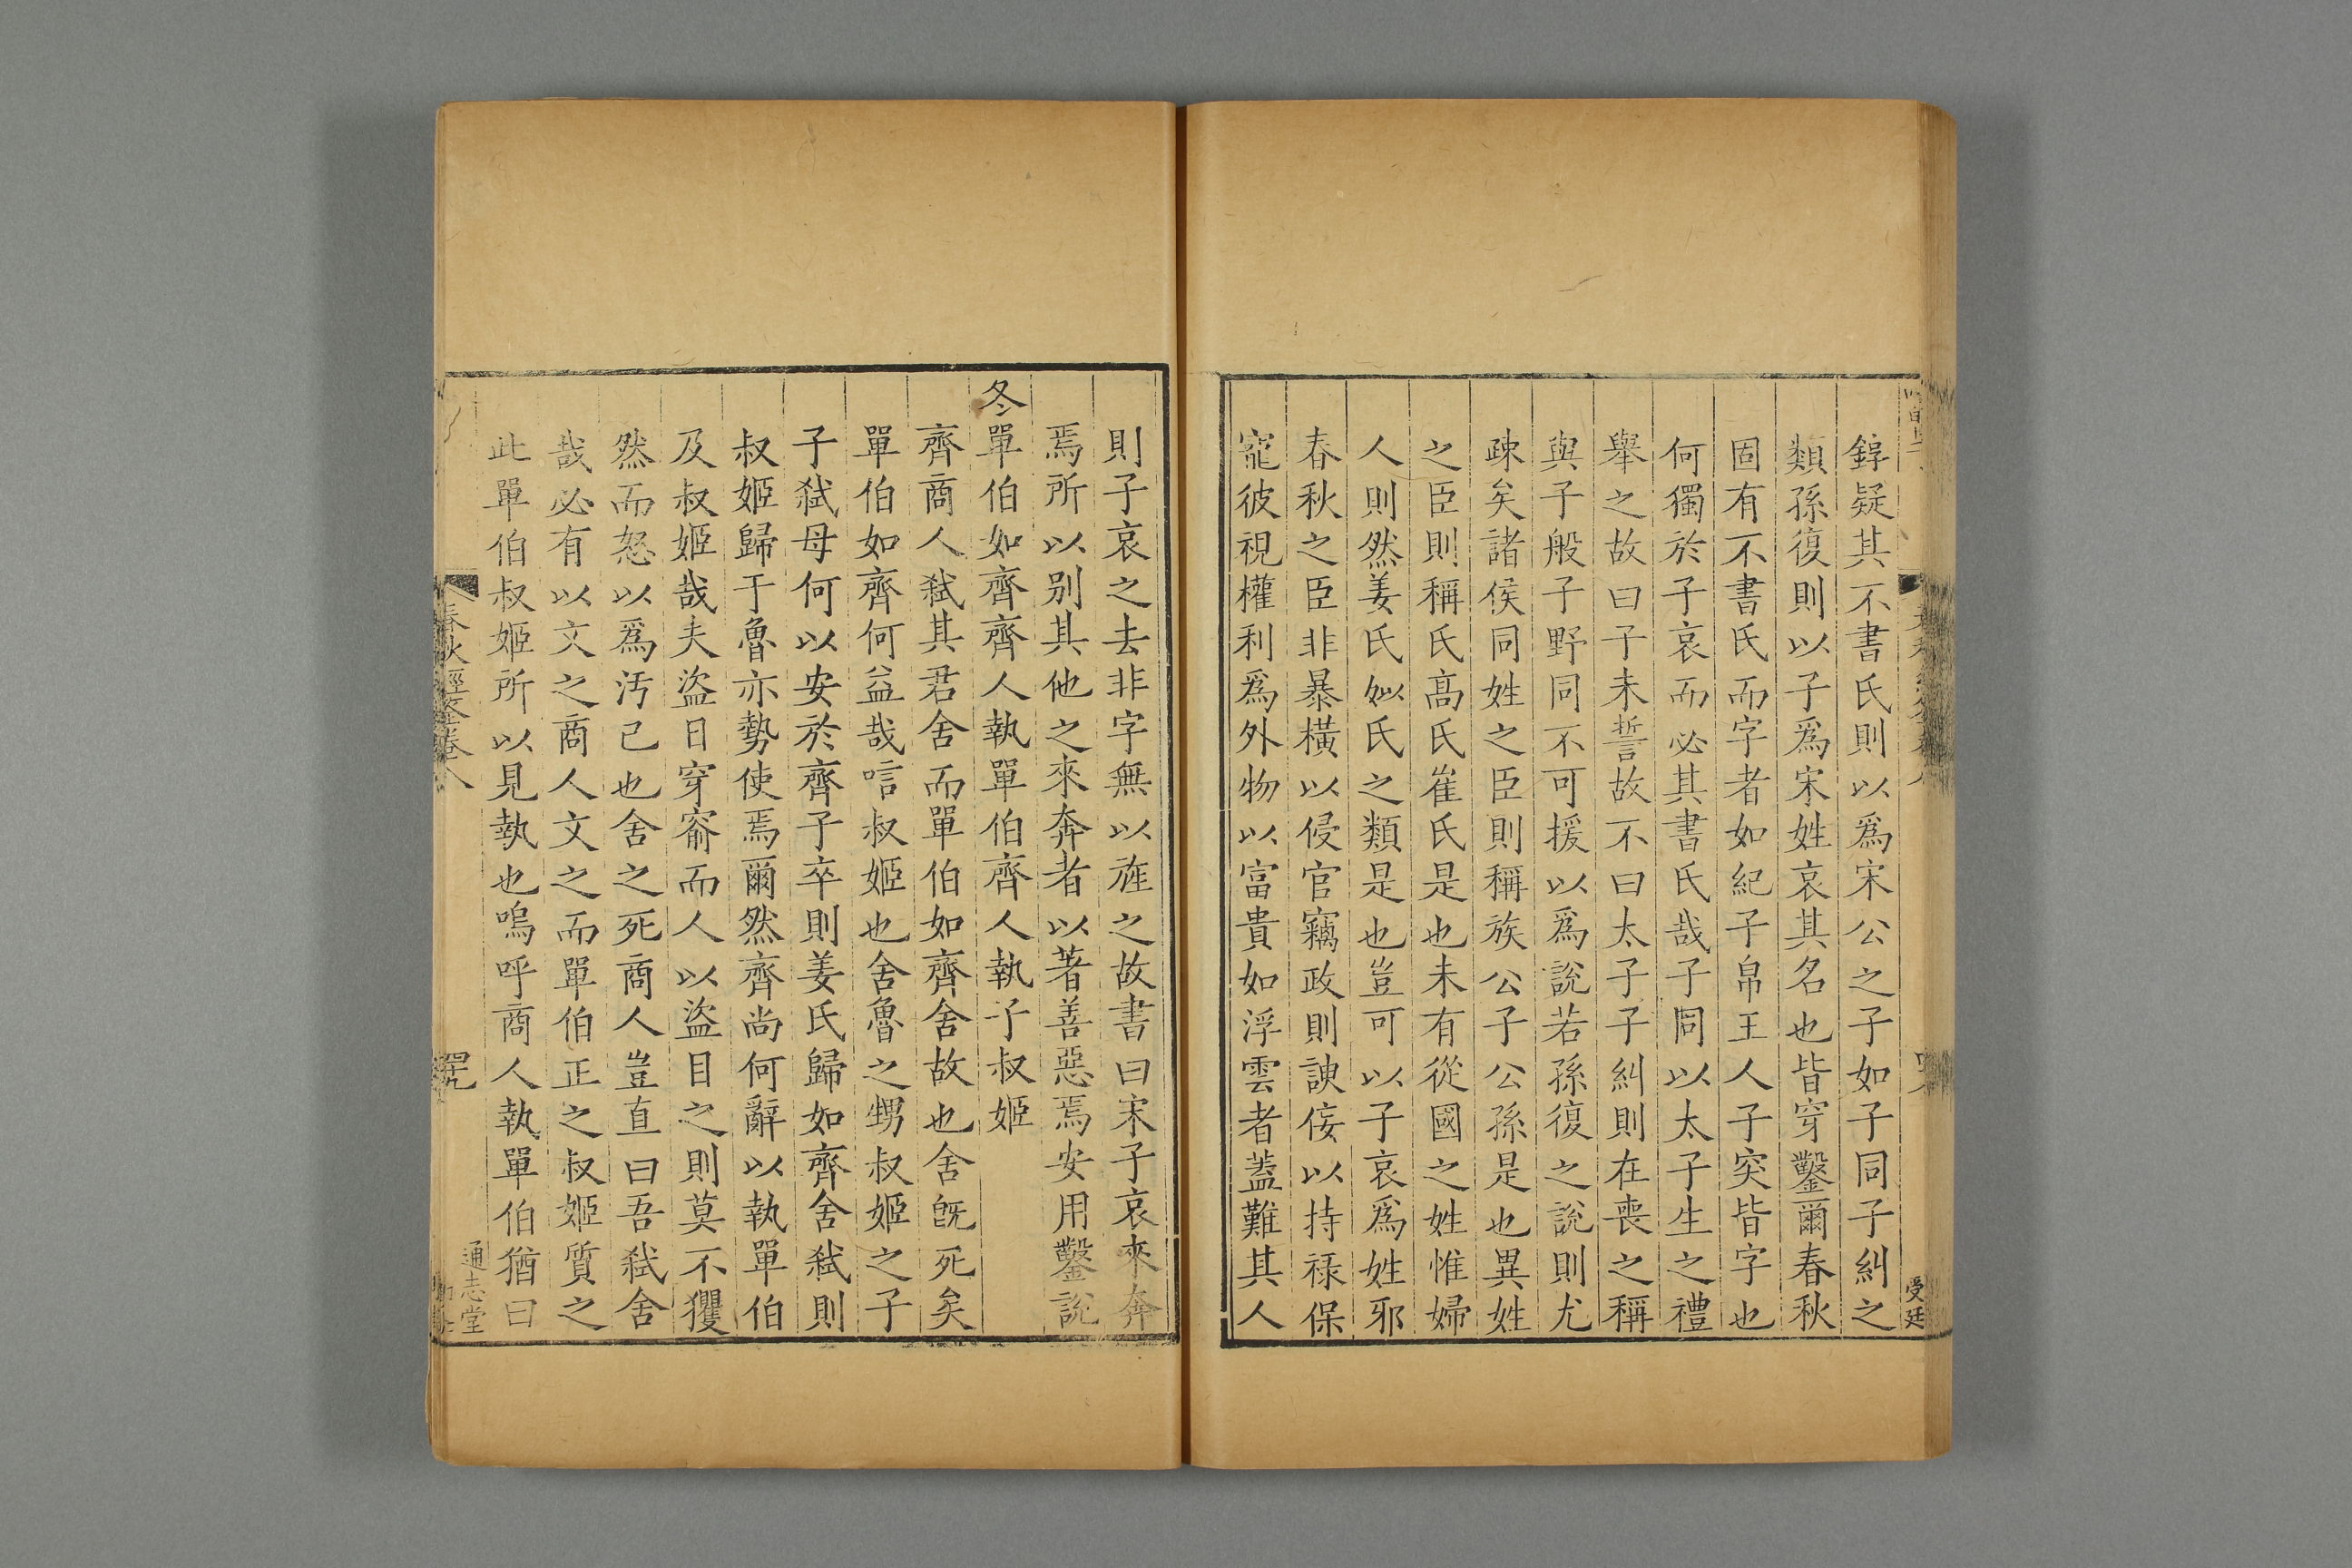 錞疑其不書氏則以爲宋公之子如子同子糾之
類孫復則以子爲宋姓哀其名也皆穿鑿爾春秋
固有不書氏而字者如紀子帛王人子突皆字也
何獨於子哀而必其書氏哉子同以太子生之禮
舉之故曰子未誓故不曰太子子糾則在喪之稱
與子般子野同不可援以爲說若孫復之說則尤
疎矣諸侯同姓之臣則稱族公子公孫是也異姓
之臣則稱氏高氏崔氏是也未有從國之姓惟婦
人則然姜氏姒氏之類是也豈可以子哀爲姓邪
春秋之臣非暴橫以侵官竊政則諛佞以持祿保
寵彼視權利爲外物以富貴如浮雲者蓋難其人
受廷
則子哀之去非字無以旌之故書曰宋子哀來奔
焉所以别其他之來奔者以著善惡焉安用鑿說
冬單伯如齊齊人執單伯齊人執子叔姬
齊商人弑其君舍而單伯如齊舍故也舍旣死矣
單伯如齊何益哉唁叔姬也舍魯之甥叔姬之子
子弑母何以安於齊子卒則姜氏歸如齊舍弑則
叔姬歸于魯亦勢使焉爾然齊尚何辭以執單伯
及叔姬哉夫盜日穿窬而人以盜目之則莫不玃
然而怒以爲汚己也舍之死商人豈直曰吾弑舍
哉必有以文之商人文之而單伯正之叔姬質之
此單伯叔姬所以見執也嗚呼商人執單伯猶曰
春秋經筌卷八
罕九
通志堂